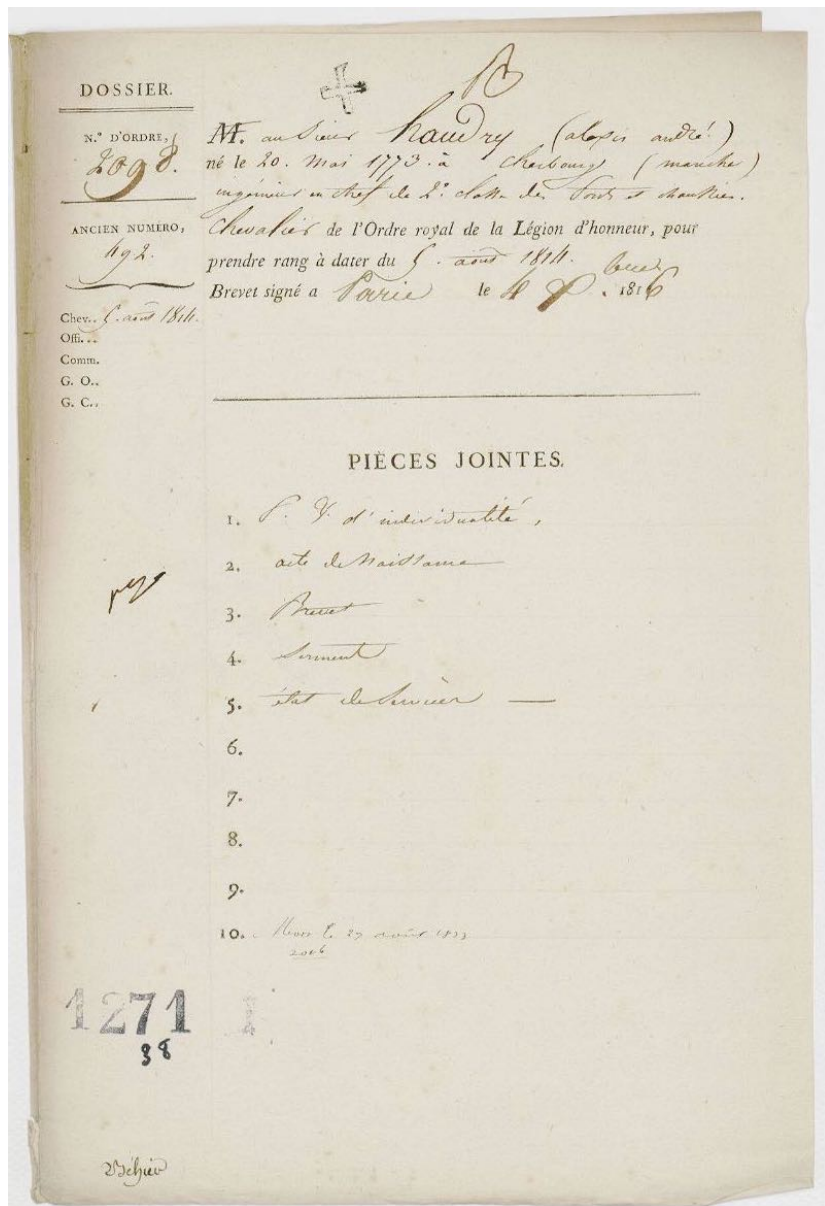 DOSSIER.
N.º D'ORDRE,
2098.
ANCIEN NUMÉRO,
492.
Chev.. 5. août 1814.
Offi. ..
Comm.
G. O..
G. C..
M. au Sieur haudry (alexis andré)
né le 20. Mai 1773. à Cherbourg (manche)
ingénieur en chef de 2e classe des Ponts et chaussées.
Chevalier de l'Ordre royal de la Légion d'honneur, pour
prendre rang à dater du 5. août 1814.
Brevet signé a Paris le 4 1816
PIÈCES JOINTES.
1. P. V. d'individualité,
2. acte de Naissance
3. Brevet
4. Serment
5. état de Services —
6.
7.
8.
9.
10. Mort le 29 août 1833
2006
1271
38